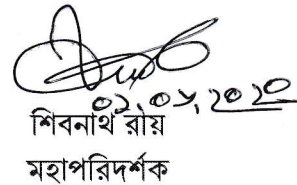 ০১.০৬.২০২০
শিবনাথ রায়
মহাপরিদর্শক